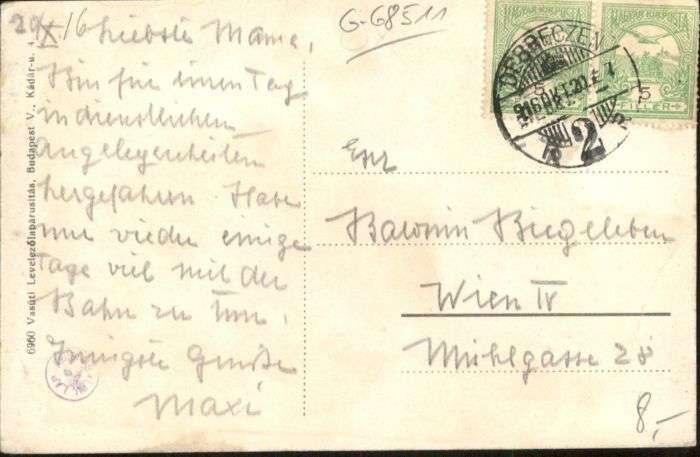 29/X/16 Liebste Mama,
Bin für einen Tag
in dienstlichen
Angelegenheiten
hergefahren. Habe
nun wieder einige
Tage viel mit der
Bahn zu tun.
Innigste Grüße
Maxi
G-68511
MAGYAR KIR. POSTA
MAGYAR KIR. POSTA
FILLER
5
5
DEBRECZEN
916 OKT. 29.
2
Baronin Biegeleben
Wien IV
Mühlgasse 28
8,-
6960 Vasúti Levelezőlapárusitás, Budapest V., Kádár-u. 4.